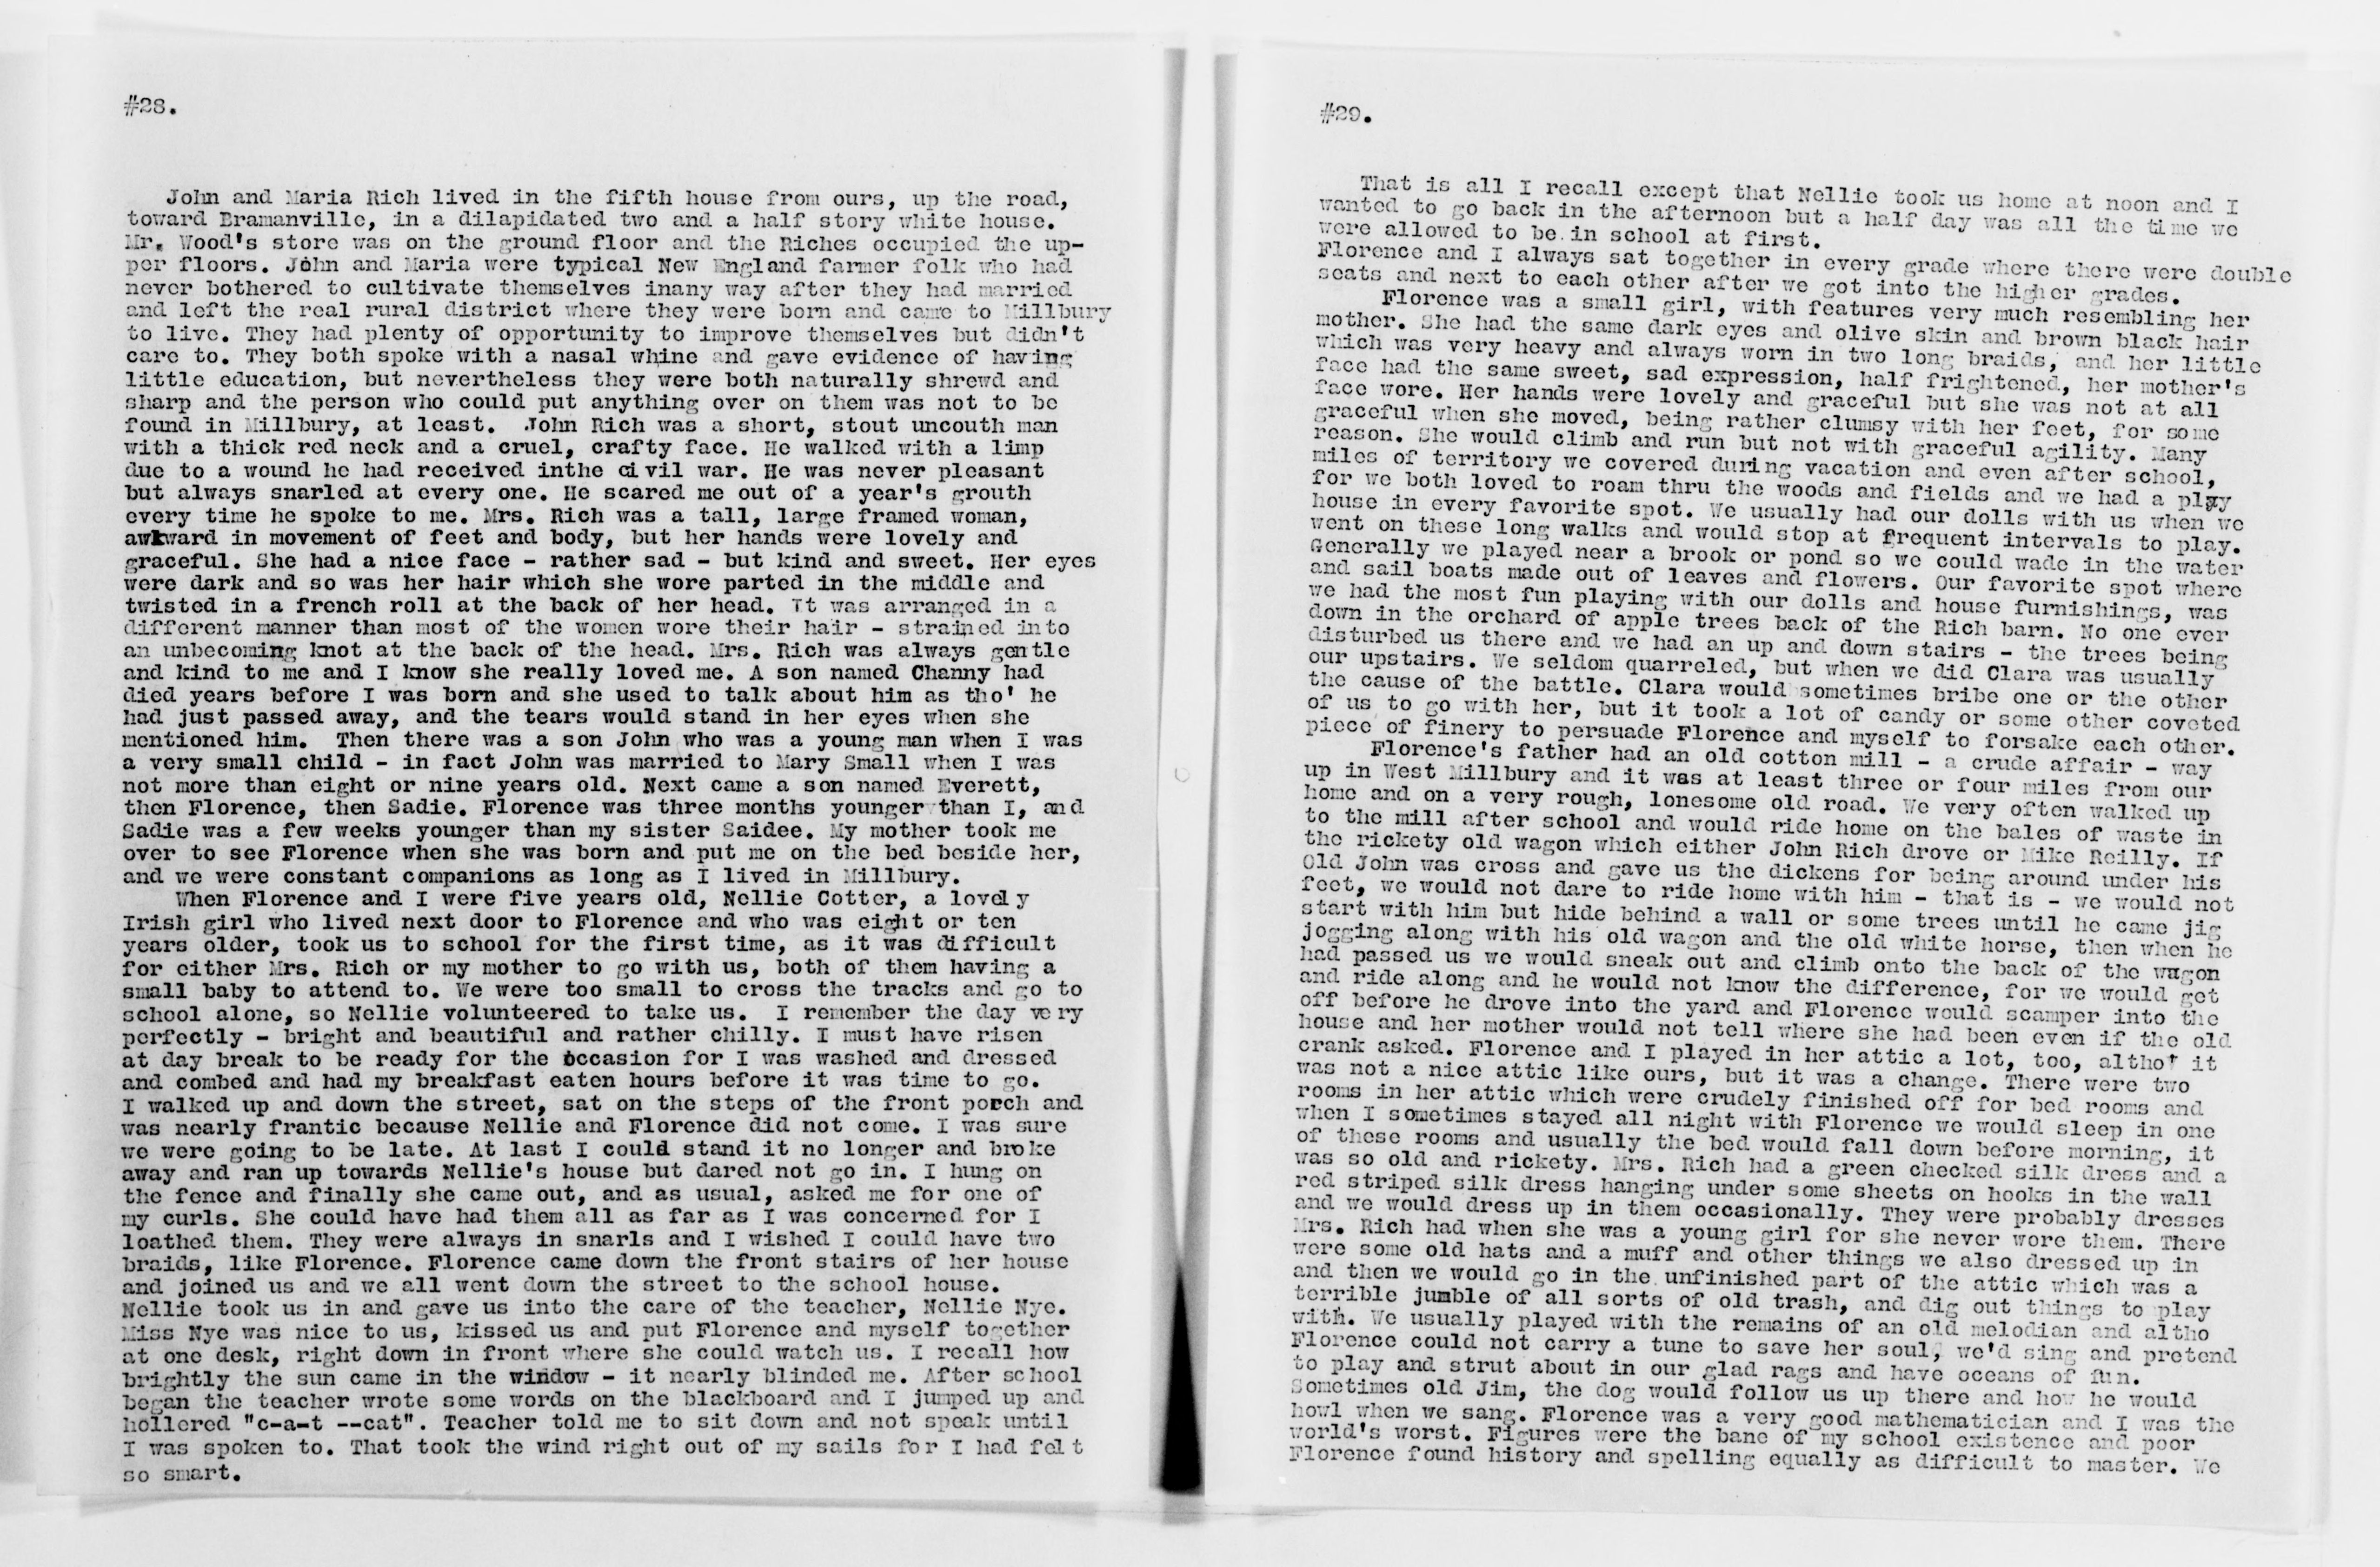 #28.
John and Maria Rich lived in the fifth house from ours, up the road,
toward Bramanville, in a dilapidated two and a half story white house.
Mr. Wood's store was on the ground floor and the Riches occupied the up-
per floors. John and Maria were typical New England farmer folk who had
never bothered to cultivate themselves inany way after they had married
and left the real rural district where they were born and came to Millbury
to live. They had plenty of opportunity to improve themselves but didn't
care to. They both spoke with a nasal whine and gave evidence of having
little education, but nevertheless they were both naturally shrewd and
sharp and the person who could put anything over on them was not to be
found in Millbury, at least. John Rich was a short, stout uncouth man
with a thick red neck and a cruel, crafty face. He walked with a limp
due to a wound he had received inthe civil war. He was never pleasant
but always snarled at every one. He scared me out of a year's grouth
every time he spoke to me. Mrs. Rich was a tall, large framed woman,
awkward in movement of feet and body, but her hands were lovely and
graceful. She had a nice face - rather sad - but kind and sweet. Her eyes
were dark and so was her hair which she wore parted in the middle and
twisted in a french roll at the back of her head. It was arranged in a
different manner than most of the women wore their hair - strained into
an unbecoming knot at the back of the head. Mrs. Rich was always gentle
and kind to me and I know she really loved me. A son named Channy had
died years before I was born and she used to talk about him as tho' he
had just passed away, and the tears would stand in her eyes when she
mentioned him. Then there was a son John who was a young man when I was
a very small child - in fact John was married to Mary Small when I was
not more than eight or nine years old. Next came a son named Everett,
then Florence, then Sadie. Florence was three months younger than I, and
Sadie was a few weeks younger than my sister Saidee. My mother took me
over to see Florence when she was born and put me on the bed beside her,
and we were constant companions as long as I lived in Millbury.
When Florence and I were five years old, Nellie Cotter, a lovely
Irish girl who lived next door to Florence and who was eight or ten
years older, took us to school for the first time, as it was difficult
for either Mrs. Rich or my mother to go with us, both of them having a
small baby to attend to. We were too small to cross the tracks and go to
school alone, so Nellie volunteered to take us. I remember the day very
perfectly - bright and beautiful and rather chilly. I must have risen
at day break to be ready for the occasion for I was washed and dressed
and combed and had my breakfast eaten hours before it was time to go.
I walked up and down the street, sat on the steps of the front porch and
was nearly frantic because Nellie and Florence did not come. I was sure
we were going to be late. At last I could stand it no longer and broke
away and ran up towards Nellie's house but dared not go in. I hung on
the fence and finally she came out, and as usual, asked me for one of
my curls. She could have had them all as far as I was concerned for I
loathed them. They were always in snarls and I wished I could have two
braids, like Florence. Florence came down the front stairs of her house
and joined us and we all went down the street to the school house.
Nellie took us in and gave us into the care of the teacher, Nellie Nye.
Miss Nye was nice to us, kissed us and put Florence and myself together
at one desk, right down in front where she could watch us. I recall how
brightly the sun came in the window - it nearly blinded me. After school
began the teacher wrote some words on the blackboard and I jumped up and
hollered "c-a-t --cat". Teacher told me to sit down and not speak until
I was spoken to. That took the wind right out of my sails for I had felt
so smart.
#29.
That is all I recall except that Nellie took us home at noon and I
wanted to go back in the afternoon but a half day was all the time we
were allowed to be in school at first.
Florence and I always sat together in every grade where there were double
seats and next to each other after we got into the higher grades.
Florence was a small girl, with features very much resembling her
mother. She had the same dark eyes and olive skin and brown black hair
which was very heavy and always worn in two long braids, and her little
face had the same sweet, sad expression, half frightened, her mother's
face wore. Her hands were lovely and graceful but she was not at all
graceful when she moved, being rather clumsy with her feet, for some
reason. She would climb and run but not with graceful agility. Many
miles of territory we covered during vacation and even after school,
for we both loved to roam thru the woods and fields and we had a play
house in every favorite spot. We usually had our dolls with us when we
went on these long walks and would stop at frequent intervals to play.
Generally we played near a brook or pond so we could wade in the water
and sail boats made out of leaves and flowers. Our favorite spot where
we had the most fun playing with our dolls and house furnishings, was
down in the orchard of apple trees back of the Rich barn. No one ever
disturbed us there and we had an up and down stairs - the trees being
our upstairs. We seldom quarreled, but when we did Clara was usually
the cause of the battle. Clara would sometimes bribe one or the other
of us to go with her, but it took a lot of candy or some other coveted
piece of finery to persuade Florence and myself to forsake each other.
Florence's father had an old cotton mill - a crude affair - way
up in West Millbury and it was at least three or four miles from our
home and on a very rough, lonesome old road. We very often walked up
to the mill after school and would ride home on the bales of waste in
the rickety old wagon which either John Rich drove or Mike Reilly. If
Old John was cross and gave us the dickens for being around under his
feet, we would not dare to ride home with him - that is - we would not
start with him but hide behind a wall or some trees until he came jig
jogging along with his old wagon and the old white horse, then when he
had passed us we would sneak out and climb onto the back of the wagon
and ride along and he would not know the difference, for we would get
off before he drove into the yard and Florence would scamper into the
house and her mother would not tell where she had been even if the old
crank asked. Florence and I played in her attic a lot, too, altho' it
was not a nice attic like ours, but it was a change. There were two
rooms in her attic which were crudely finished off for bed rooms and
when I sometimes stayed all night with Florence we would sleep in one
of these rooms and usually the bed would fall down before morning, it
was so old and rickety. Mrs. Rich had a green checked silk dress and a
red striped silk dress hanging under some sheets on hooks in the wall
and we would dress up in them occasionally. They were probably dresses
Mrs. Rich had when she was a young girl for she never wore them. There
were some old hats and a muff and other things we also dressed up in
and then we would go in the unfinished part of the attic which was a
terrible jumble of all sorts of old trash, and dig out things to play
with. We usually played with the remains of an old melodian and altho
Florence could not carry a tune to save her soul, we'd sing and pretend
to play and strut about in our glad rags and have oceans of fun.
Sometimes old Jim, the dog would follow us up there and how he would
howl when we sang. Florence was a very good mathematician and I was the
world's worst. Figures were the bane of my school existence and poor
Florence found history and spelling equally as difficult to master. We